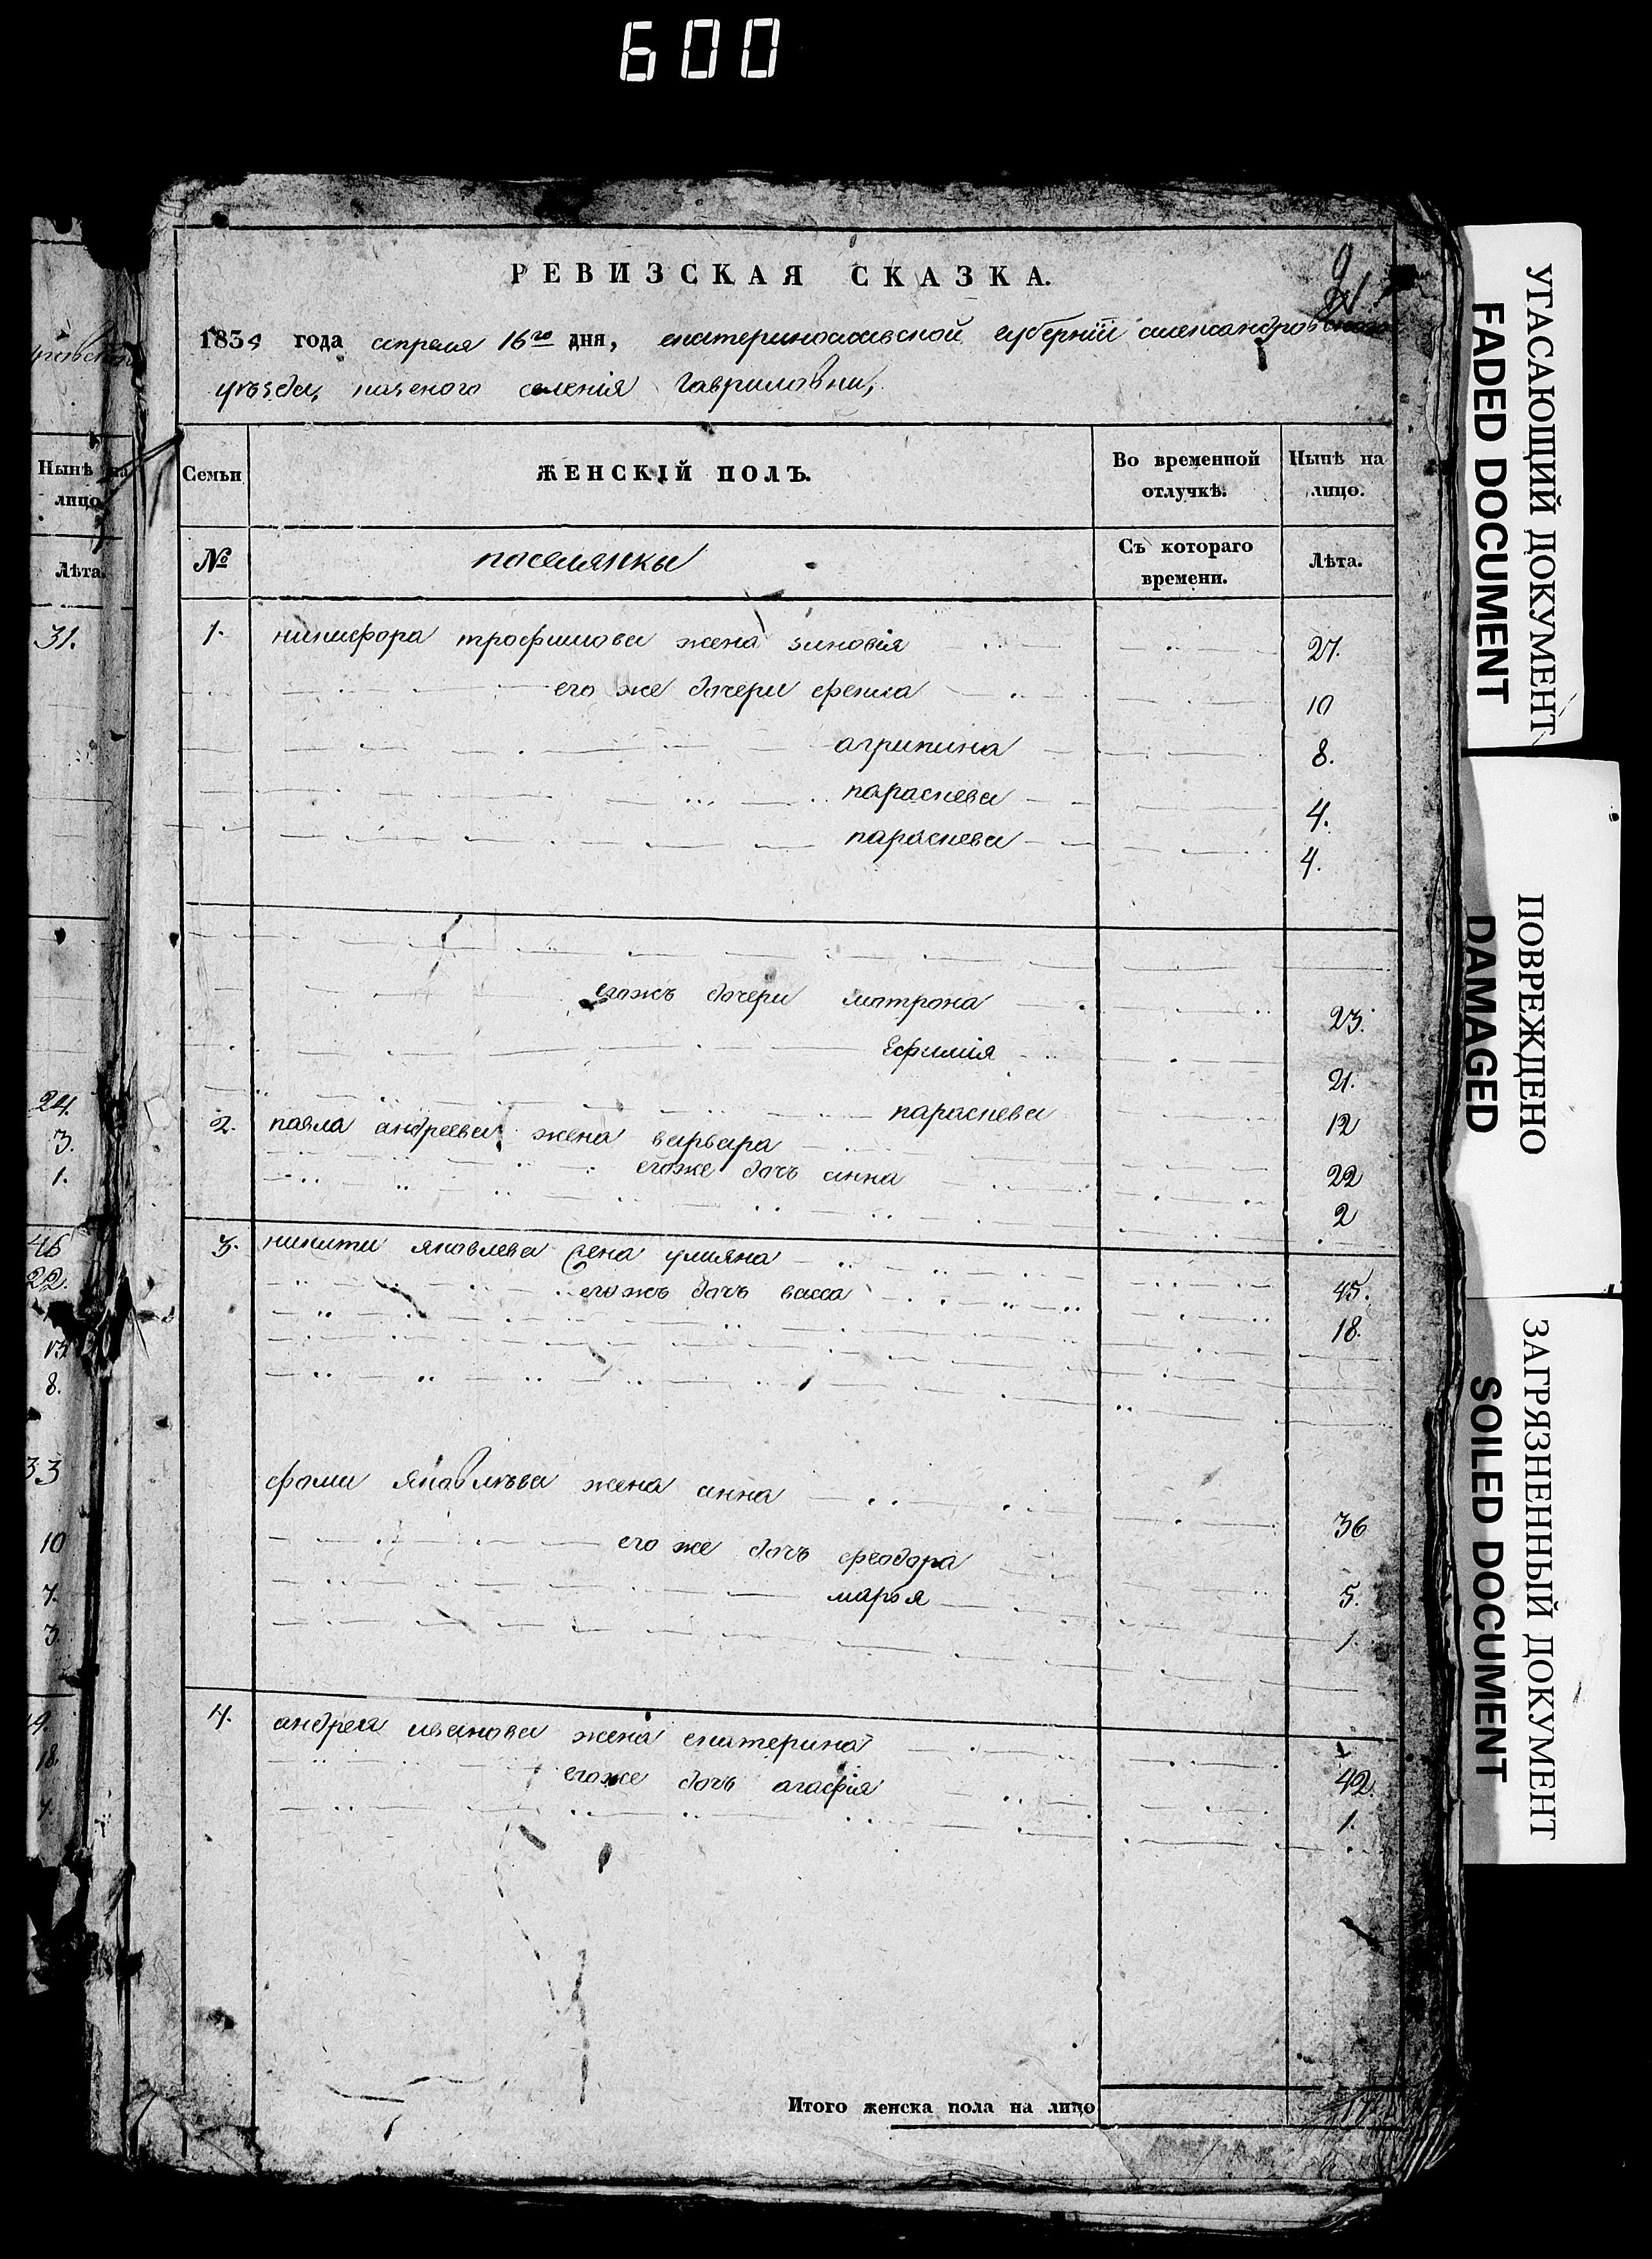 600
РЕВИЗСКАЯ СКАЗКА.
1834 года апреля 16го дня, екатеринославской губернїи александровского
уезда, казеного селенія Гавриловки,
Нынѣ на лицо.
Лѣта.
31.
24.
3.
1.
46
22.
15
8.
33
10
7.
3.
18
Семьи
ЖЕНСКІЙ ПОЛЪ.
Во временной отлучкѣ.
Нынѣ на лицо.
№
поселянки
Съ котораго времени.
Лѣта.
1. никифора трофимова жена зиновія 27.
его же дочери фекла 10
агрипина 8.
параскева 4.
параскева 4.
егожъ дочери матрона 23.
Ефимія 21.
параскева 12
2. павла андреева жена варвара 22
егоже дочъ анна 2
3. никити яковлева жена улияна 45.
егожъ дочъ васса 18.
фоми яковлѣва жена анна 36
его же дочъ феодора 5.
марья 1.
4. андрея иванова жена екатерина 42.
егоже дочъ агафія 1.
Итого женска пола на лицо
УГАСАЮЩИЙ ДОКУМЕНТ
FADED DOCUMENT
ПОВРЕЖДЕНО
DAMAGED
ЗАГРЯЗНЕННЫЙ ДОКУМЕНТ
SOILED DOCUMENT